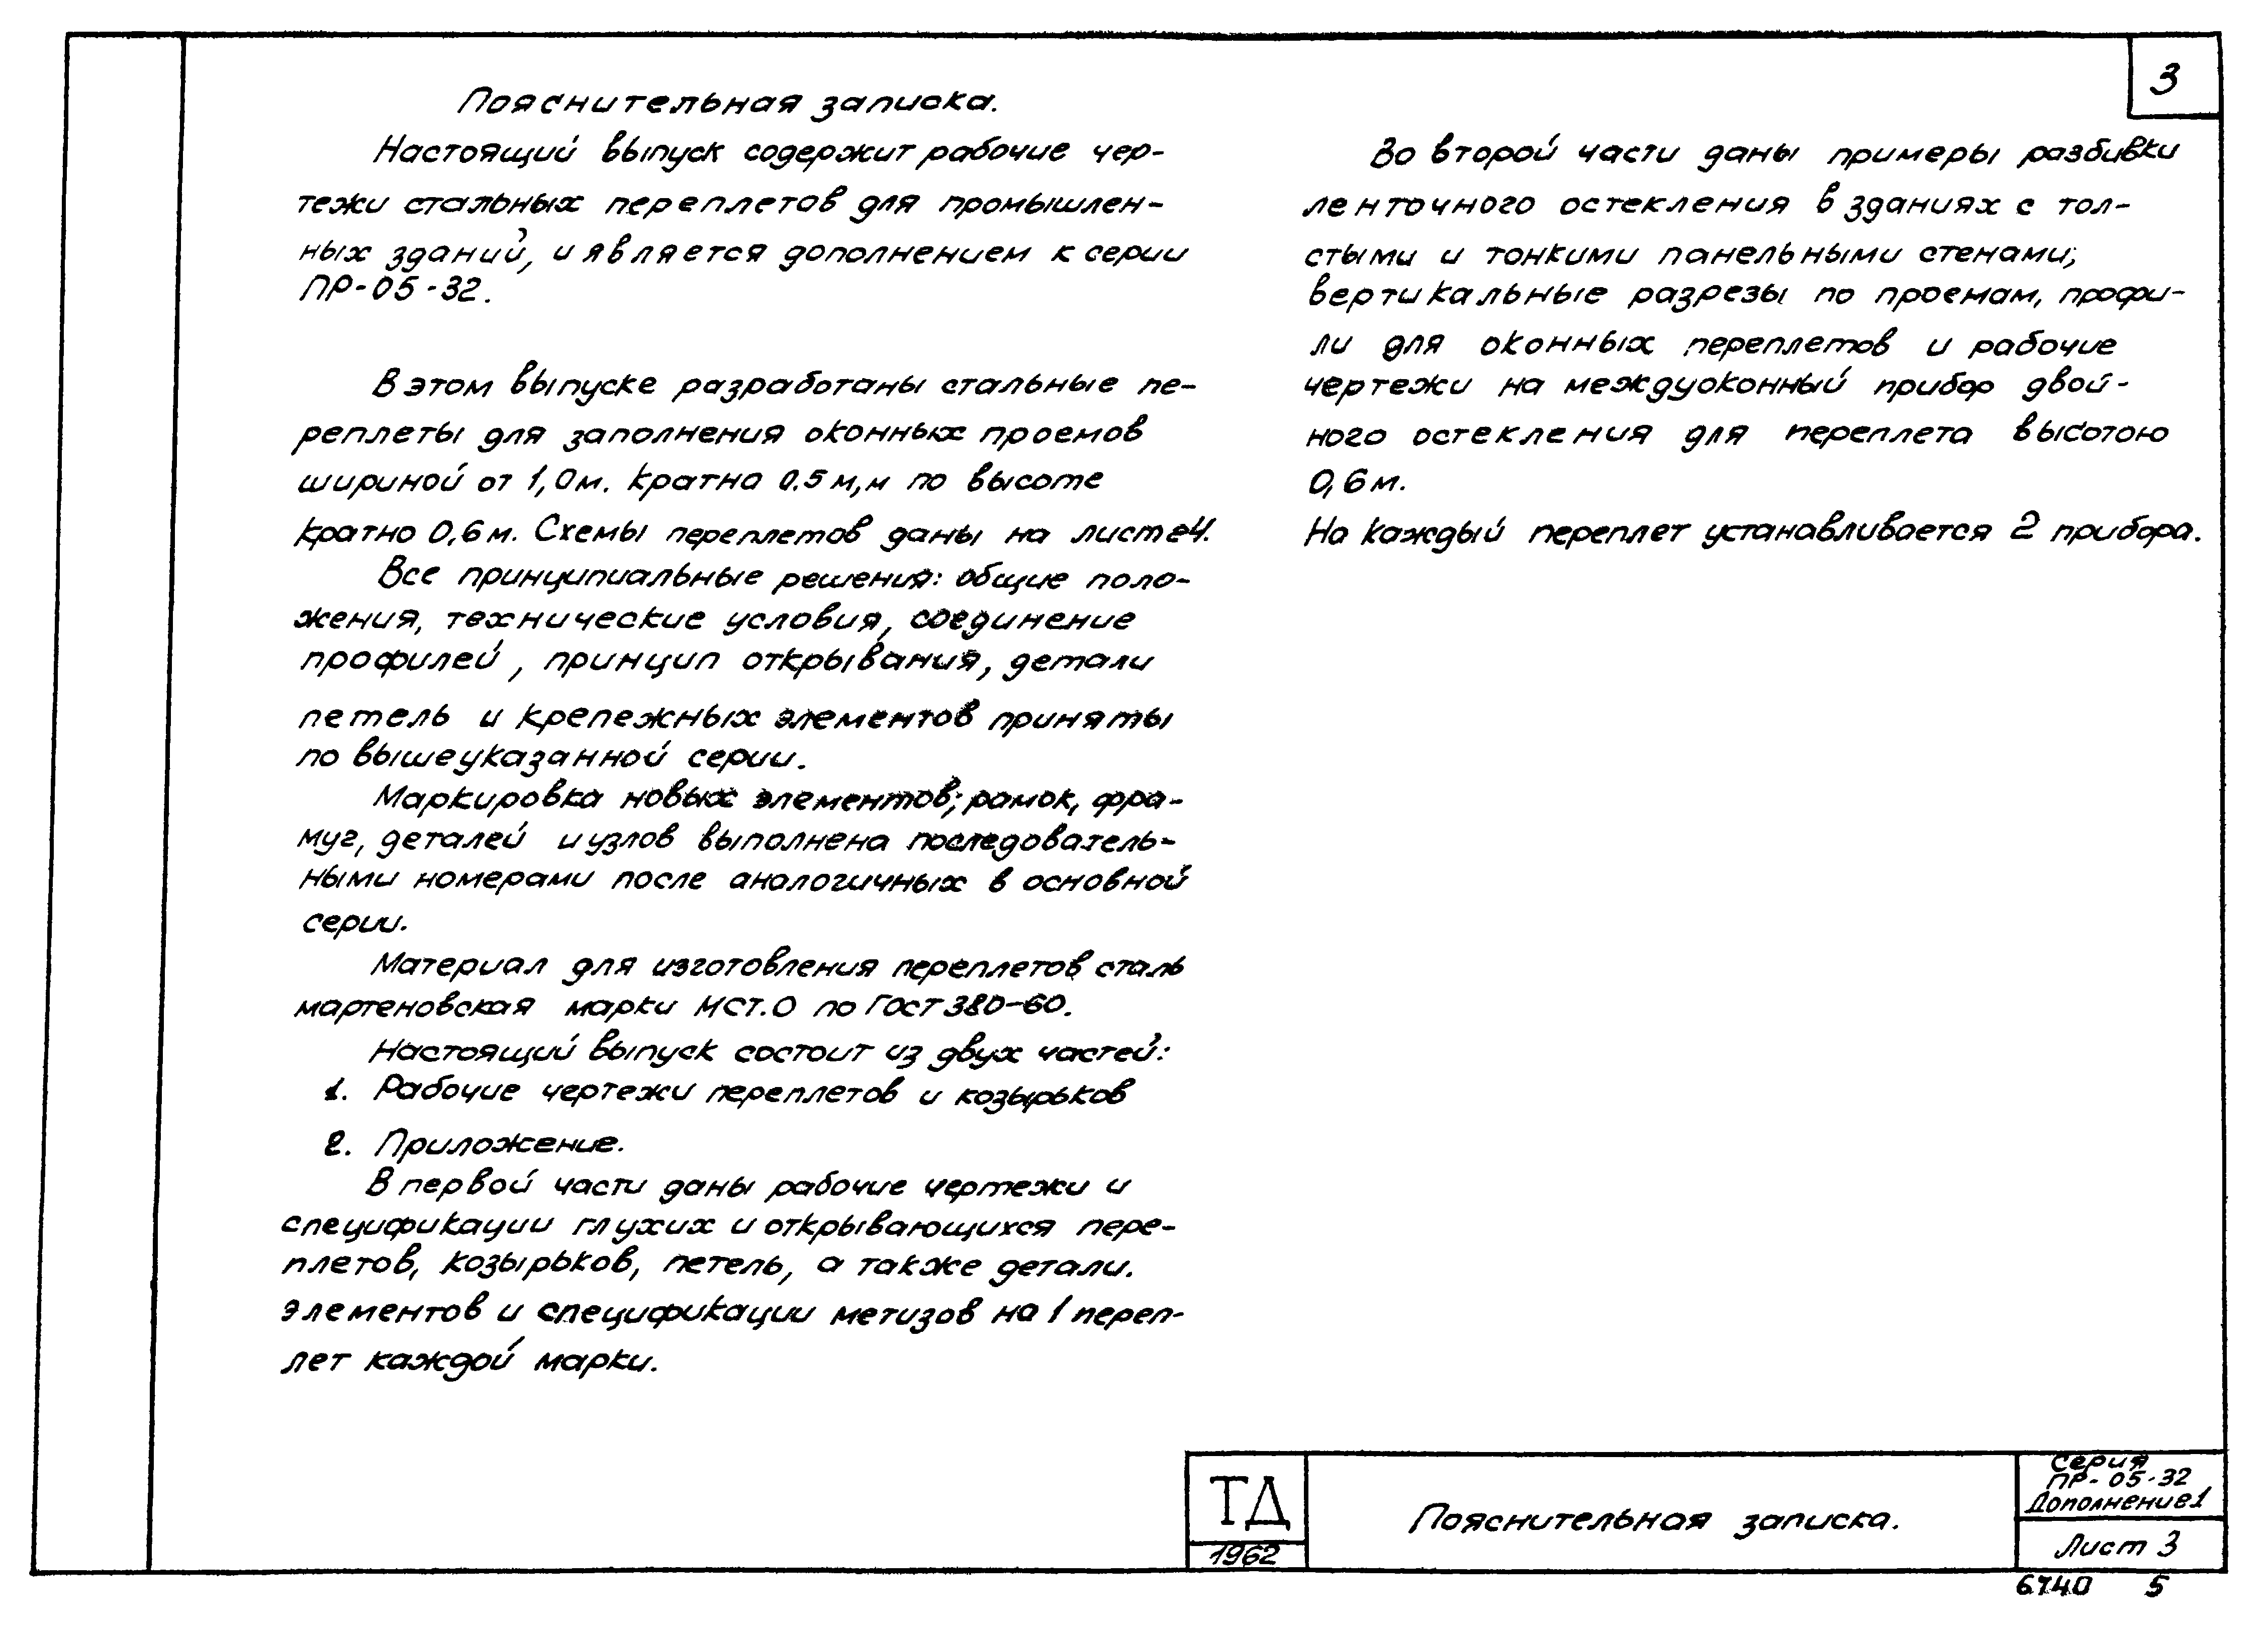 3
Пояснительная записка.
Настоящий выпуск содержит рабочие чер-
тежи стальных переплетов для промышлен-
ных зданий, и является дополнением к серии
ПР-05-32.
В этом выпуске разработаны стальные пе-
реплеты для заполнения оконных проемов
шириной от 1,0м. кратно 0.5м,и по высоте
кратно 0,6м. Схемы переплетов даны на листе4.
Все принципиальные решения: общие поло-
жения, технические условия, соединение
профилей, принцип открывания, детали
петель и крепежных элементов приняты
по вышеуказанной серии.
Маркировка новых элементов; рамок, фра-
муг, деталей и узлов выполнена последователь-
ными номерами после аналогичных в основной
серии.
Материал для изготовления переплетов сталь
мартеновская марки МСТ.0 по ГОСТ 380-60.
Настоящий выпуск состоит из двух частей:
1. Рабочие чертежи переплетов и козырьков
2. Приложение.
В первой части даны рабочие чертежи и
спецификации глухих и открывающихся пере-
плетов, козырьков, петель, а также детали.
элементов и спецификации метизов на 1 переп-
лет каждой марки.
Во второй части даны примеры разбивки
ленточного остекления в зданиях с тол-
стыми и тонкими панельными стенами;
вертикальные разрезы по проемам, профи-
ли для оконных переплетов и рабочие
чертежи на междуоконный прибор двой-
ного остекления для переплета высотою
0,6м.
На каждый переплет устанавливается 2 прибора.
ТД
1962
Пояснительная записка.
Серия
ПР-05-32
Дополнение1
Лист 3
6740 5